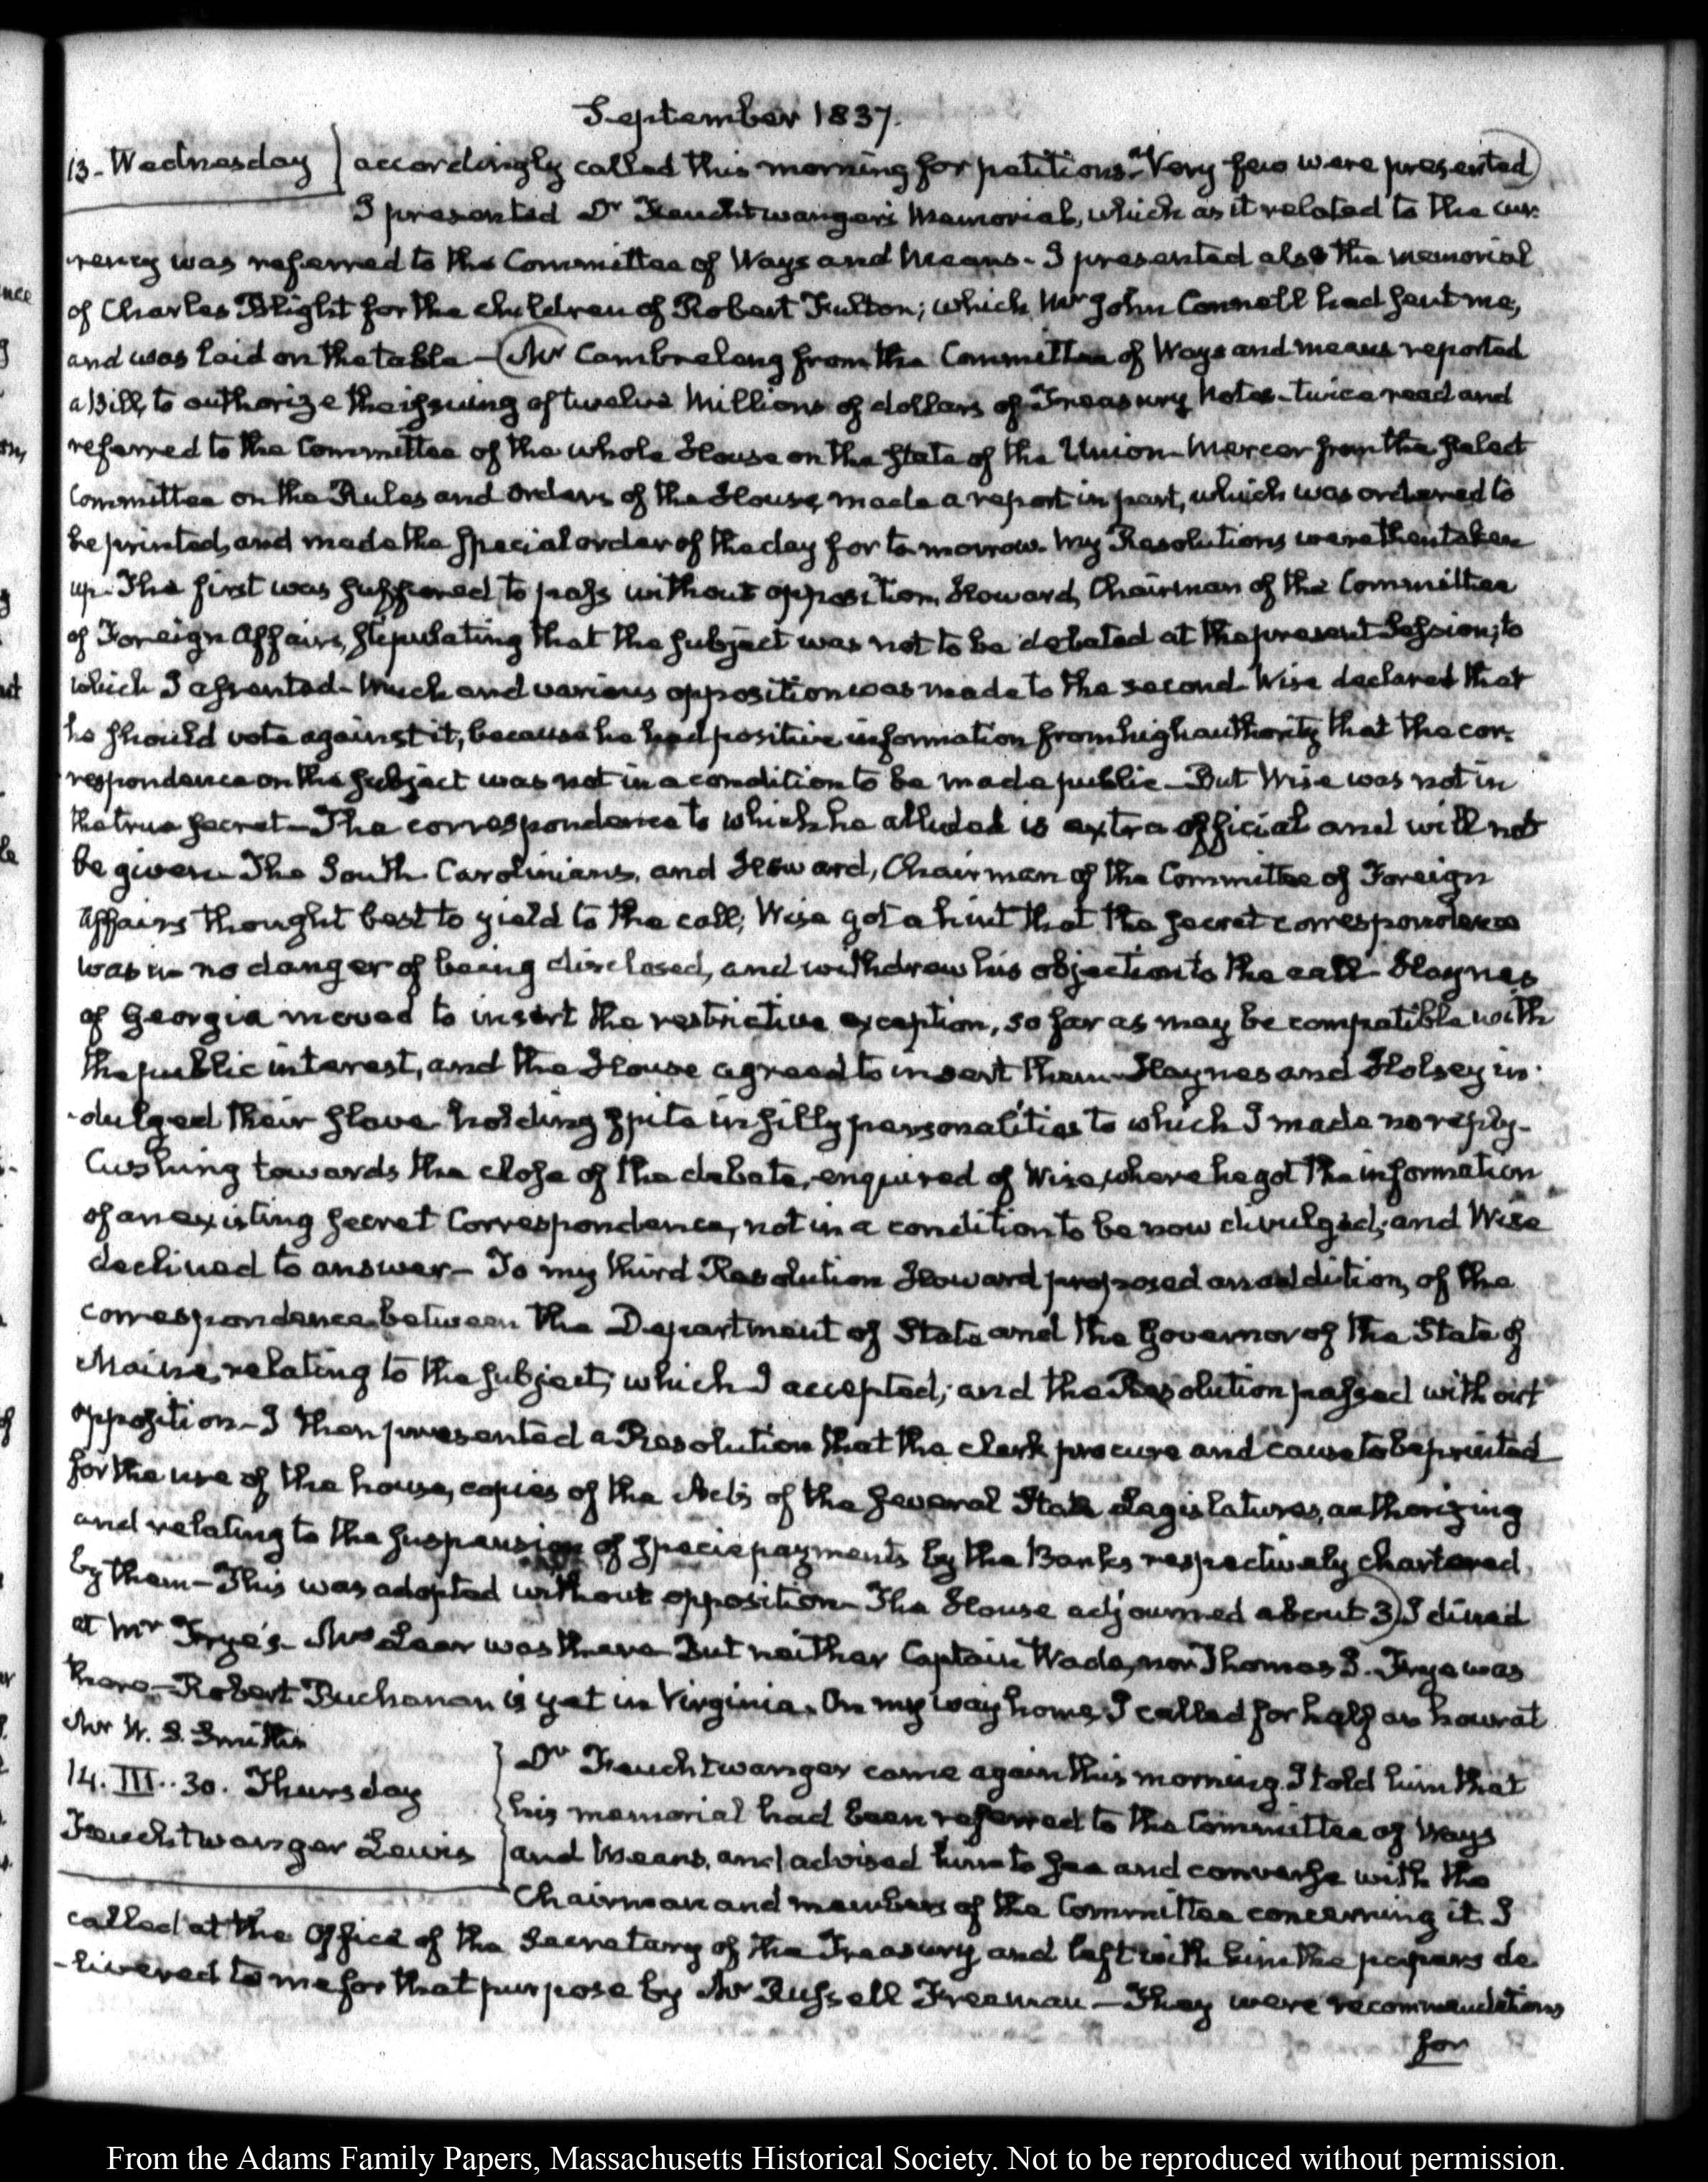 September 1837.
13. Wednesday } accordingly called this morning for petitions. Very few were presented
I presented Dr Feuchtwanger's Memorial, which as it related to the cur-
rency was referred to the Committee of Ways and Means. I presented also the memorial
of Charles Blight for the children of Robert Fulton; which Mr John Connell had sent me,
and was laid on the table—Mr Cambreleng from the Committee of Ways and means reported
a Bill, to authorize the issuing of twelve Millions of dollars of Treasury Notes—twice read and
referred to the Committee of the whole House on the State of the Union—Mercer from the Select
Committee on the Rules and Orders of the House, made a report in part, which was ordered to
be printed, and made the Special order of the day for to-morrow. My Resolutions were then taken
up. The first was suffered to pass without opposition, Howard, Chairman of the Committee
of Foreign Affairs, stipulating that the subject was not to be debated at the present Session; to
which I assented—Much and various opposition was made to the second—Wise declared that
he should vote against it, because he had positive information from high authority that the cor-
respondence on the subject was not in a condition to be made public—But Wise was not in
the true secret—The correspondence to which he alluded is extra official and will not
be given—The South Carolinians, and Howard, Chairman of the Committee of Foreign
Affairs thought best to yield to the call; Wise got a hint that the secret correspondence
was in no danger of being disclosed, and withdrew his objection to the call—Haynes
of Georgia moved to insert the restrictive exception, so far as may be compatible with
the public interest, and the House agreed to insert them—Haynes and Holsey in-
-dulged their slave-holding spite in silly personalities to which I made no reply—
Cushing towards the close of the debate, enquired of Wise, where he got the information
of an existing secret Correspondence, not in a condition to be now divulged; and Wise
declined to answer—To my third Resolution Howard proposed an addition, of the
correspondence between the Department of State and the Governor of the State of
Maine, relating to the subject; which I accepted; and the Resolution passed without
opposition—I then presented a Resolution that the clerk procure and cause to be printed
for the use of the house, copies of the Acts of the several State Legislatures, authorizing
and relating to the suspension of specie payments by the Banks respectively chartered
by them—This was adopted without opposition—The House adjourned about 3) I dined
at Mr Frye's—Mrs Lear was there—But neither Captain Wade, nor Thomas B. Frye was
there—Robert Buchanan is yet in Virginia. On my way home, I called for half an hour at
Mr W. S. Smith's
14. III..30. Thursday
Feuchtwanger Lewis
Dr Feuchtwanger came again this morning. I told him that
his memorial had been referred to the Committee of Ways
and Means, and advised him to see and converse with the
Chairman and members of the Committee concerning it. I
called at the Office of the Secretary of the Treasury and left with him the papers de
-livered to me for that purpose by Mr Russell Freeman—They were recommendations
for
From the Adams Family Papers, Massachusetts Historical Society. Not to be reproduced without permission.